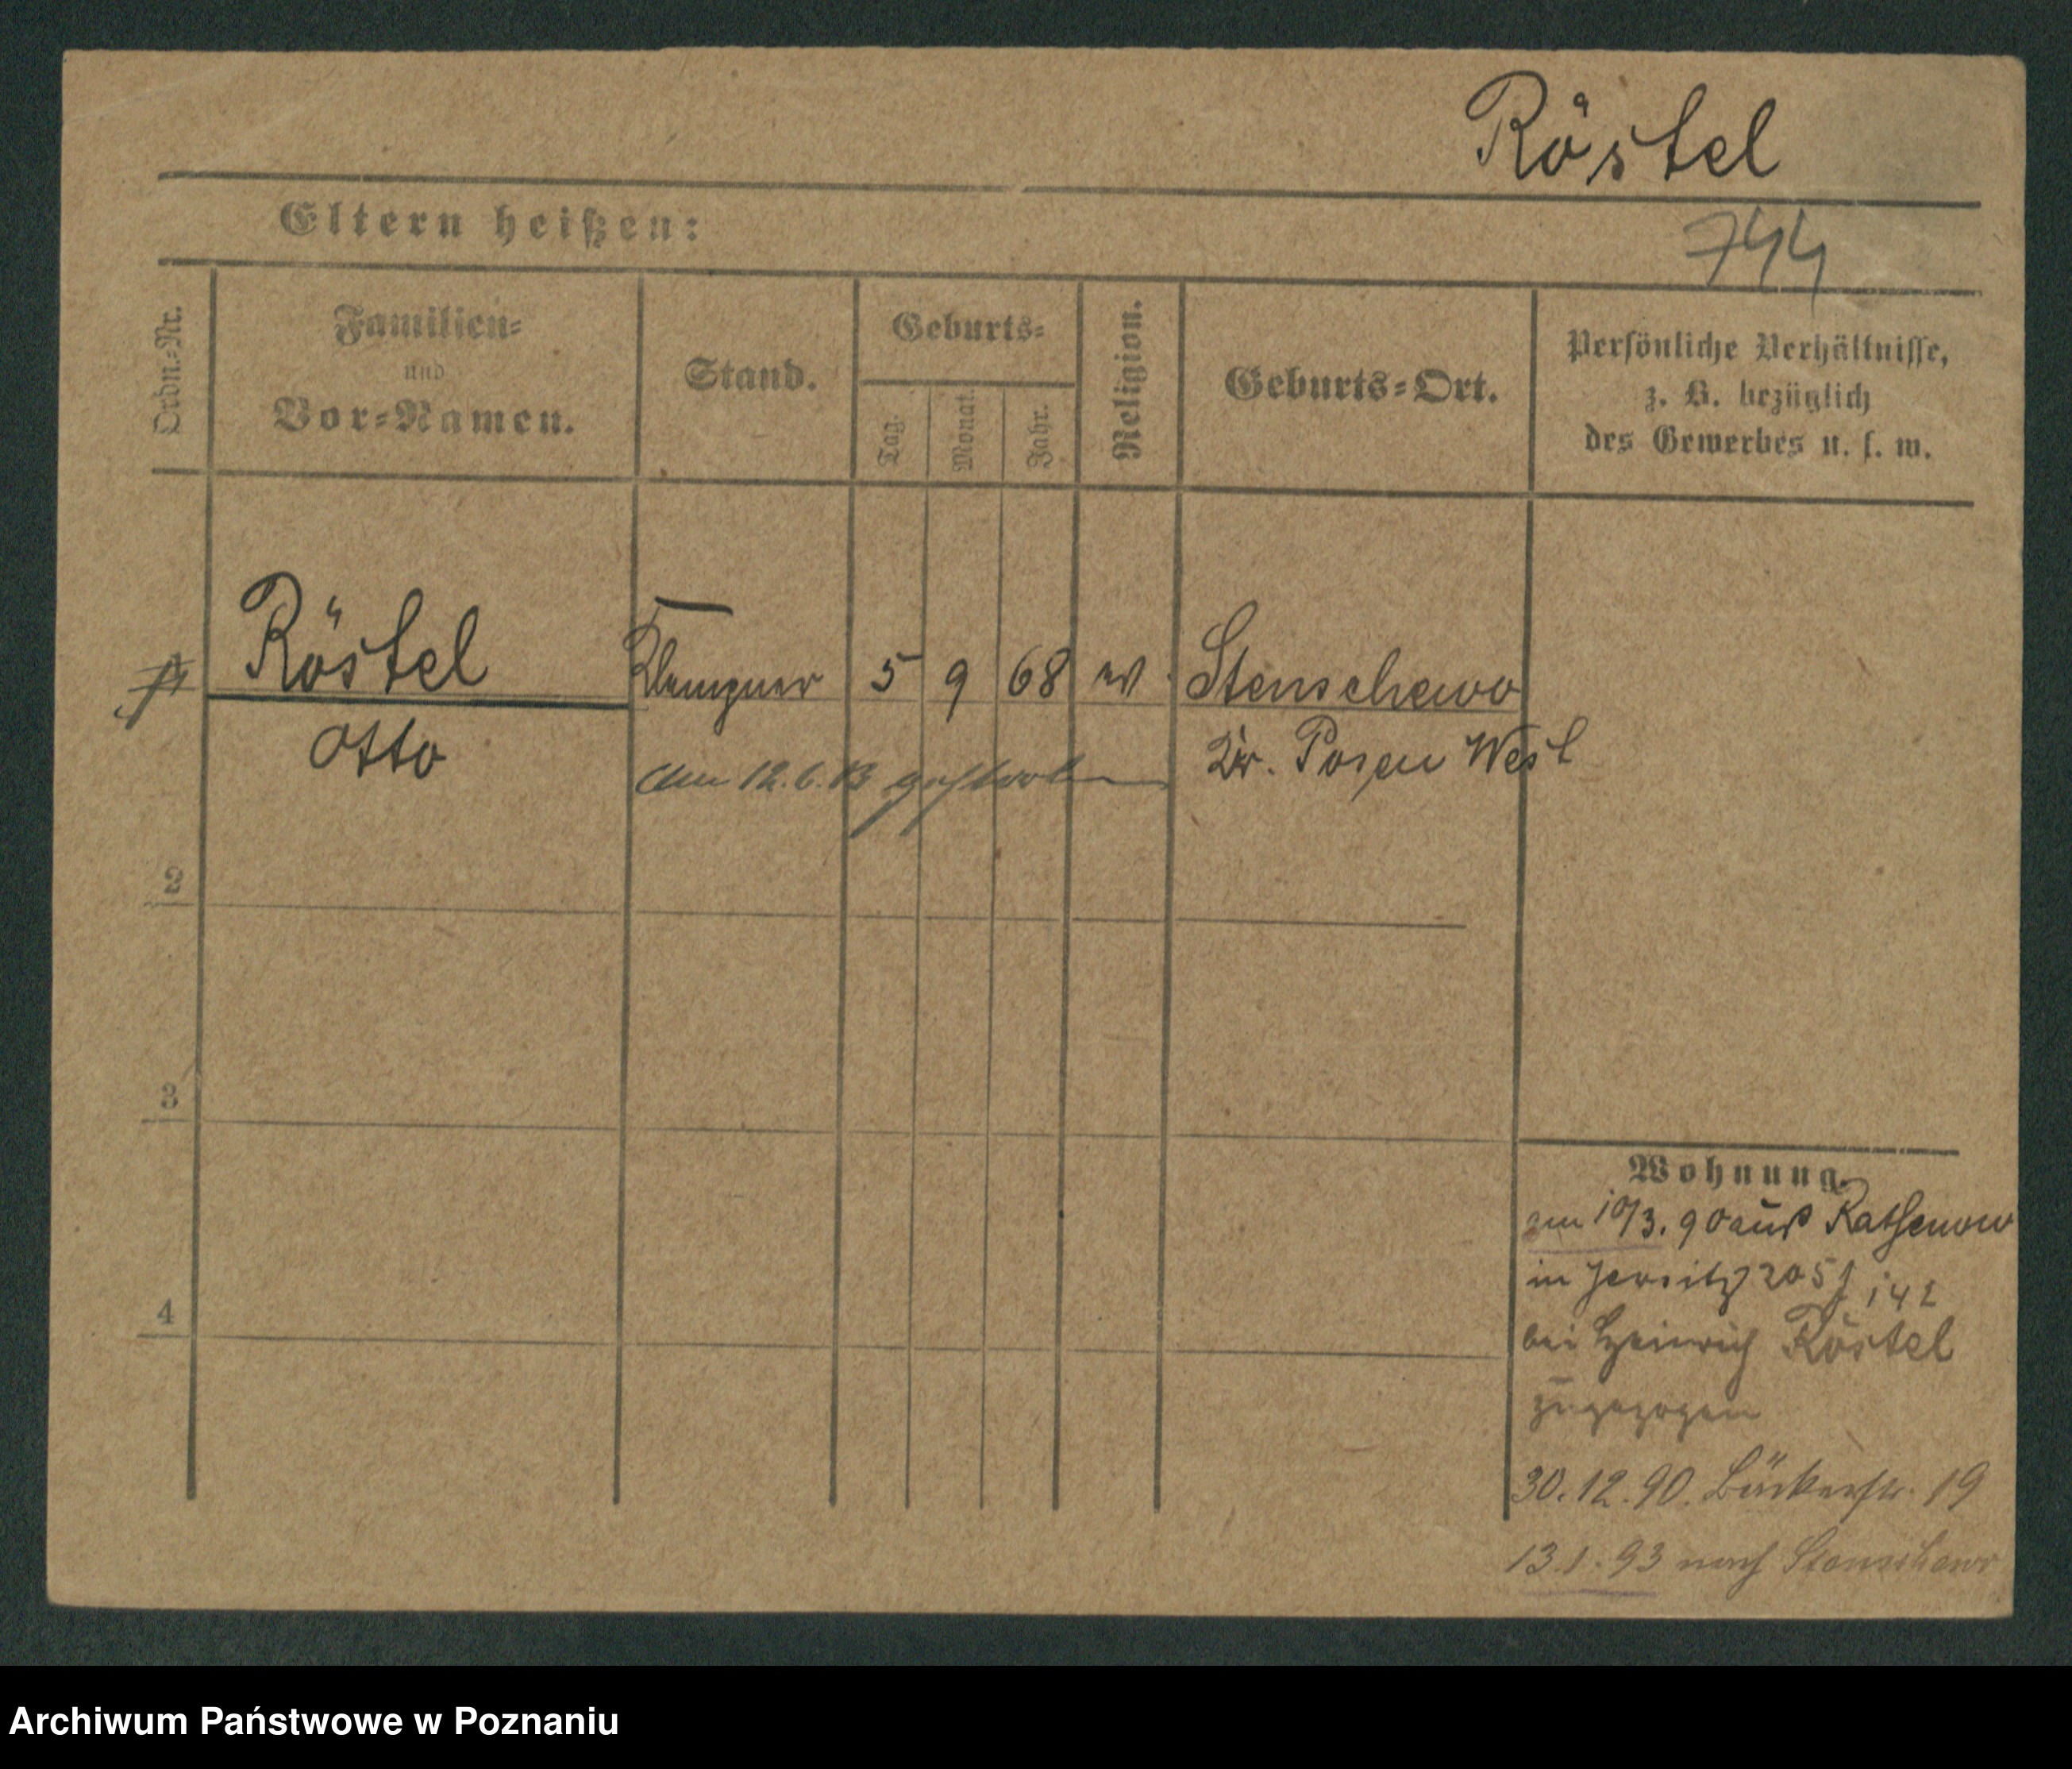 Röstel
Eltern heißen:
744
Ordn.=Nr.
Familien=
und
Vor=Namen.
Stand.
Geburts=
Tag.
Monat.
Jahr.
Religion.
Geburts=Ort.
Persönliche Verhältnisse,
z. B. bezüglich
des Gewerbes u. s. w.
1
Röstel
Klempner 5 9 68 ev. Stenschewo
Otto
Kr. Posen West
Am 12.6.13 gestorben
2
3
4
Wohnung.
am 10/3. 90 aus Rathenow
in Jersitz 205
bei Heinrich Röstel
zugezogen
30.12.90. Bäckerstr. 19
13.1.93 nach Stenschewo
Archiwum Państwowe w Poznaniu